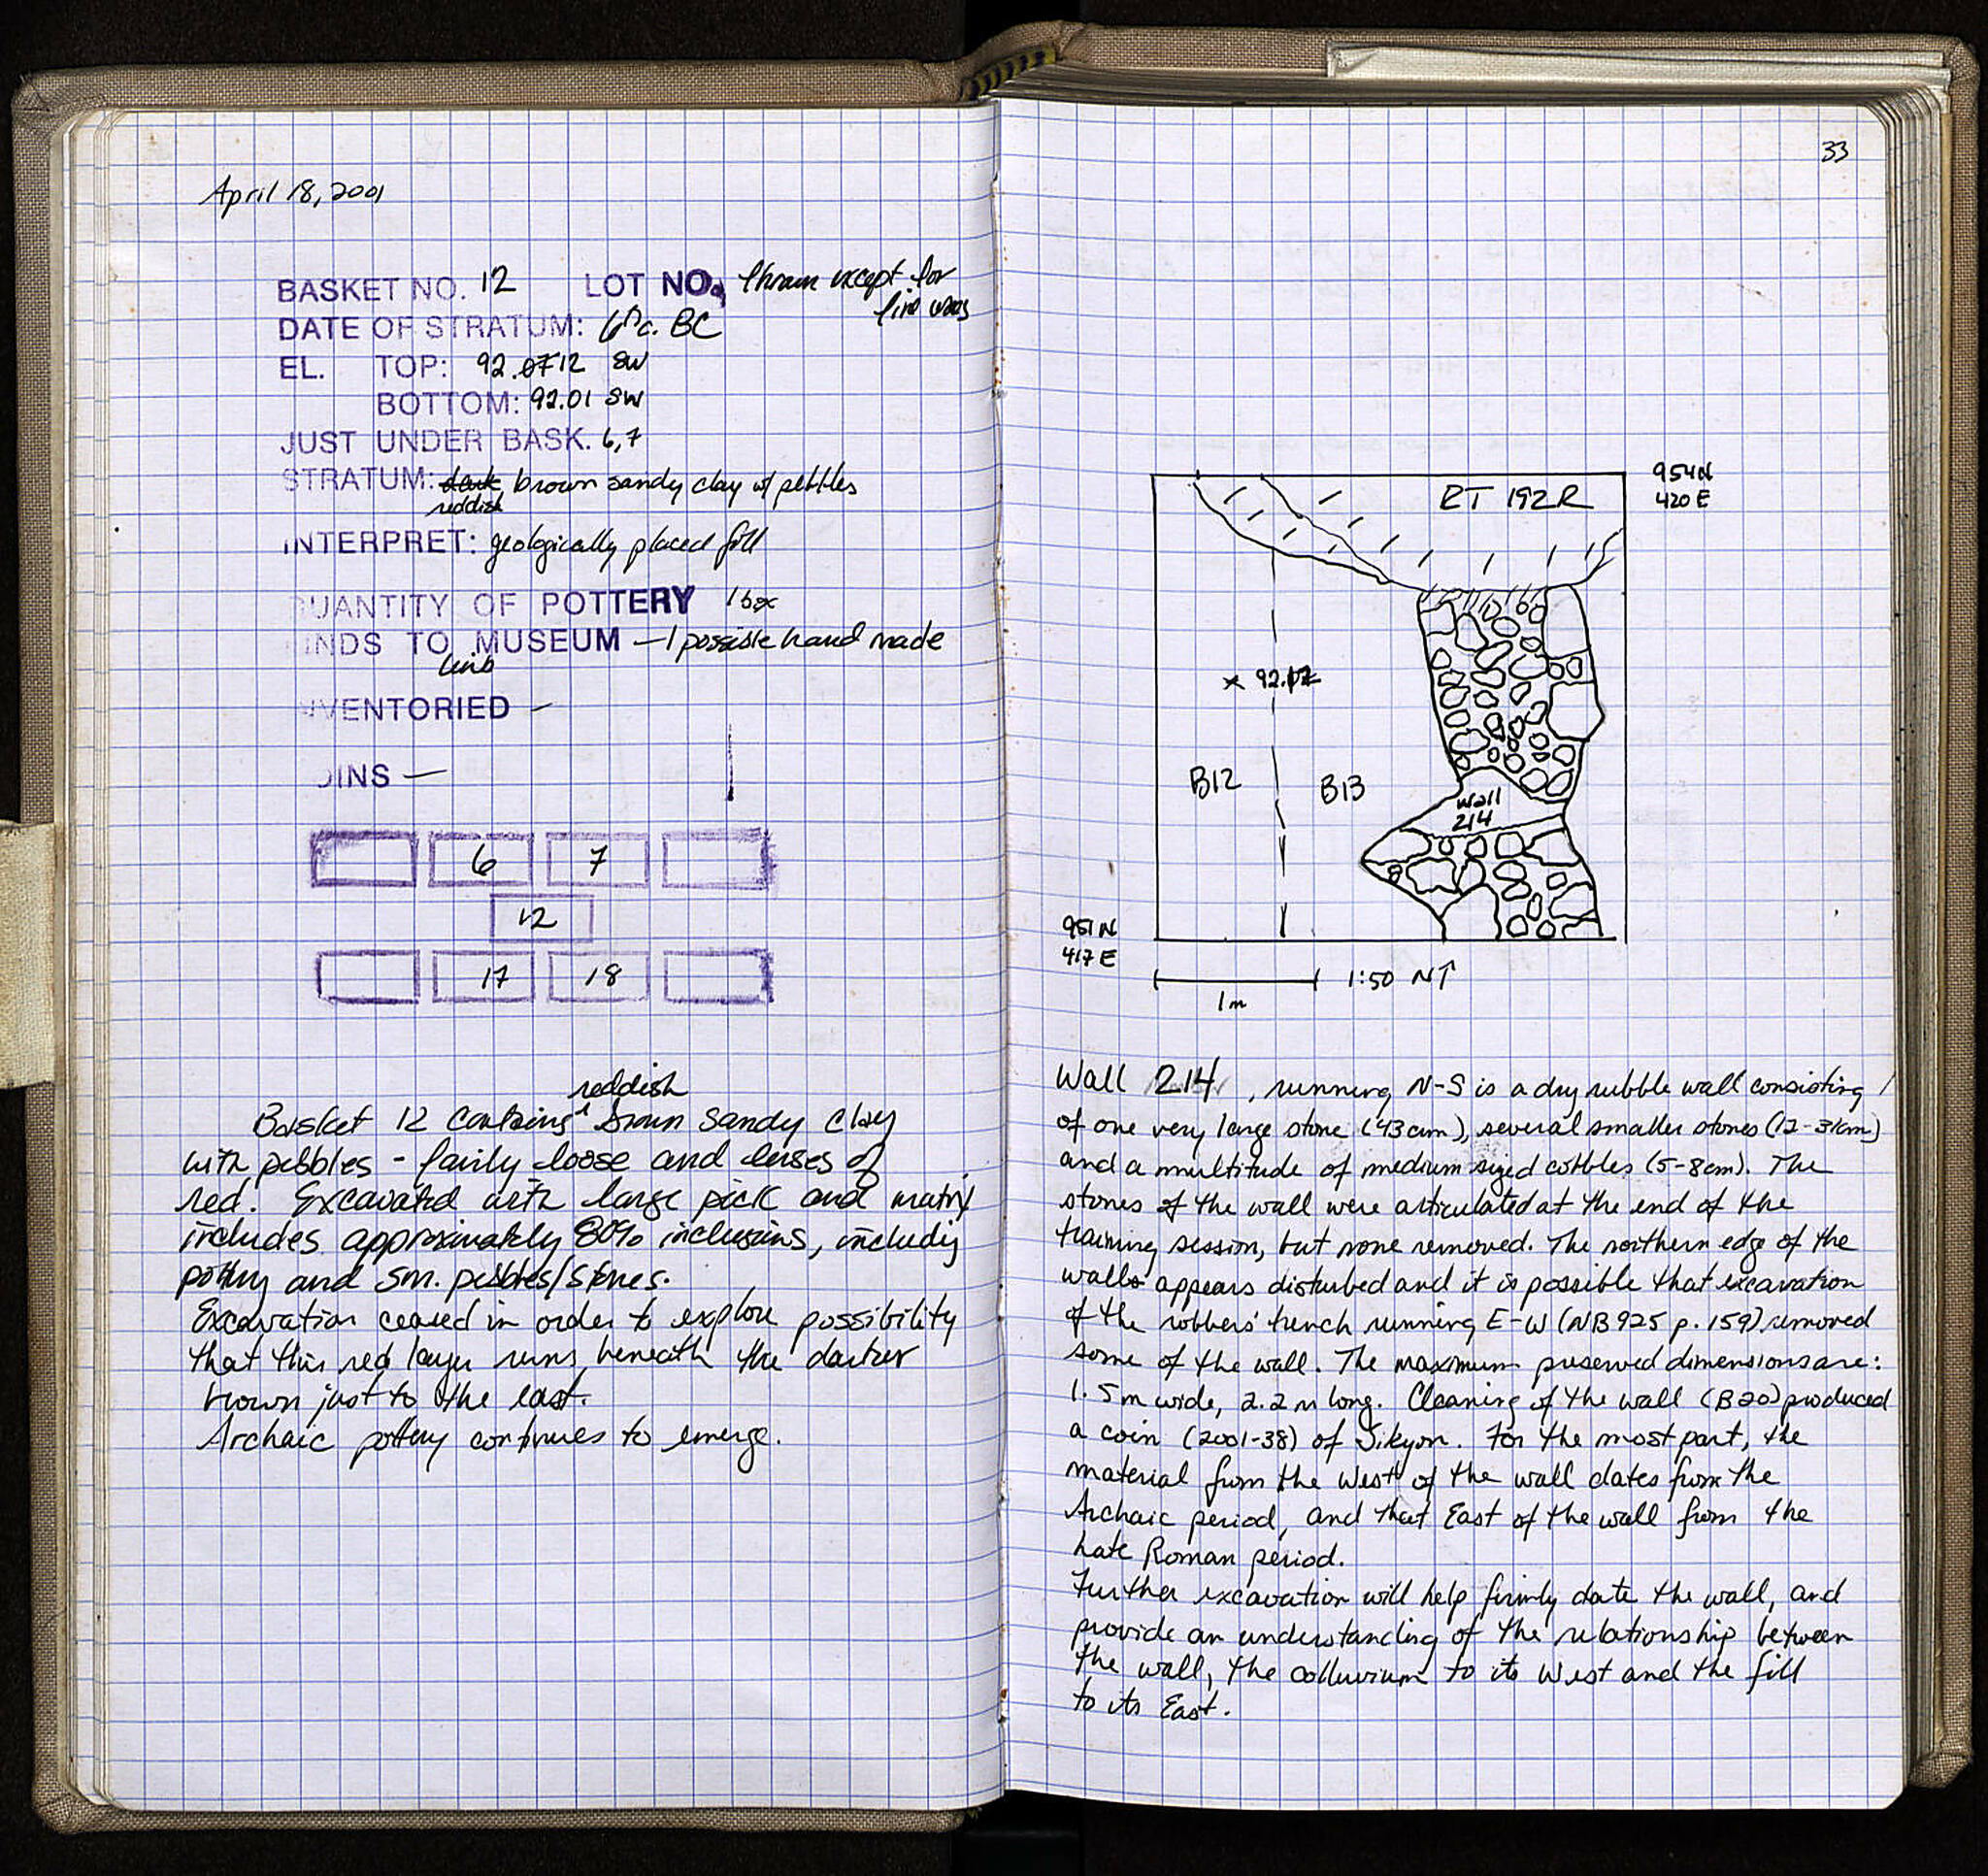 April 18, 2001
BASKET NO. 12 LOT NO. thrown except for
fine wares
DATE OF STRATUM: 6th c. BC
EL. TOP: 92.0712 SW
BOTTOM: 92.01 SW
JUST UNDER BASK. 6,7
STRATUM: dark brown sandy clay w/ pebbles
reddish
INTERPRET: geologically placed fill
QUANTITY OF POTTERY 1 box
FINDS TO MUSEUM - 1 possible hand made
limb
INVENTORIED -
COINS -
6 7
12
17 18
reddish
Basket 12 contains ^ brown sandy clay
with pebbles - fairly loose and lenses of
red. Excavated with large pick and matrix
includes approximately 80% inclusions, including
pottery and sm. pebbles/stones.
Excavation ceased in order to explore possibility
that this red layer runs beneath the darker
brown just to the east.
Archaic pottery continues to emerge.
33
954N
420 E
RT 192R
x 92.12
B12 B13
Wall
214
951 N
417 E
1:50 N↑
1m
Wall 214, running N-S is a dry rubble wall consisting
of one very large stone (43cm), several smaller stones (12-31cm)
and a multitude of medium sized cobbles (5-8cm). The
stones of the wall were articulated at the end of the
training session, but none removed. The northern edge of the
walls appears disturbed and it is possible that excavation
of the robbers' trench running E-W (NB 925 p. 159) removed
some of the wall. The maximum preserved dimensions are:
1.5m wide, 2.2m long. Cleaning of the wall (B20) produced
a coin (2001-38) of Sikyon. For the most part, the
material from the West of the wall dates from the
Archaic period, and that East of the wall from the
Late Roman period.
Further excavation will help firmly date the wall, and
provide an understanding of the relationship between
the wall, the colluvium to its West and the fill
to its East.